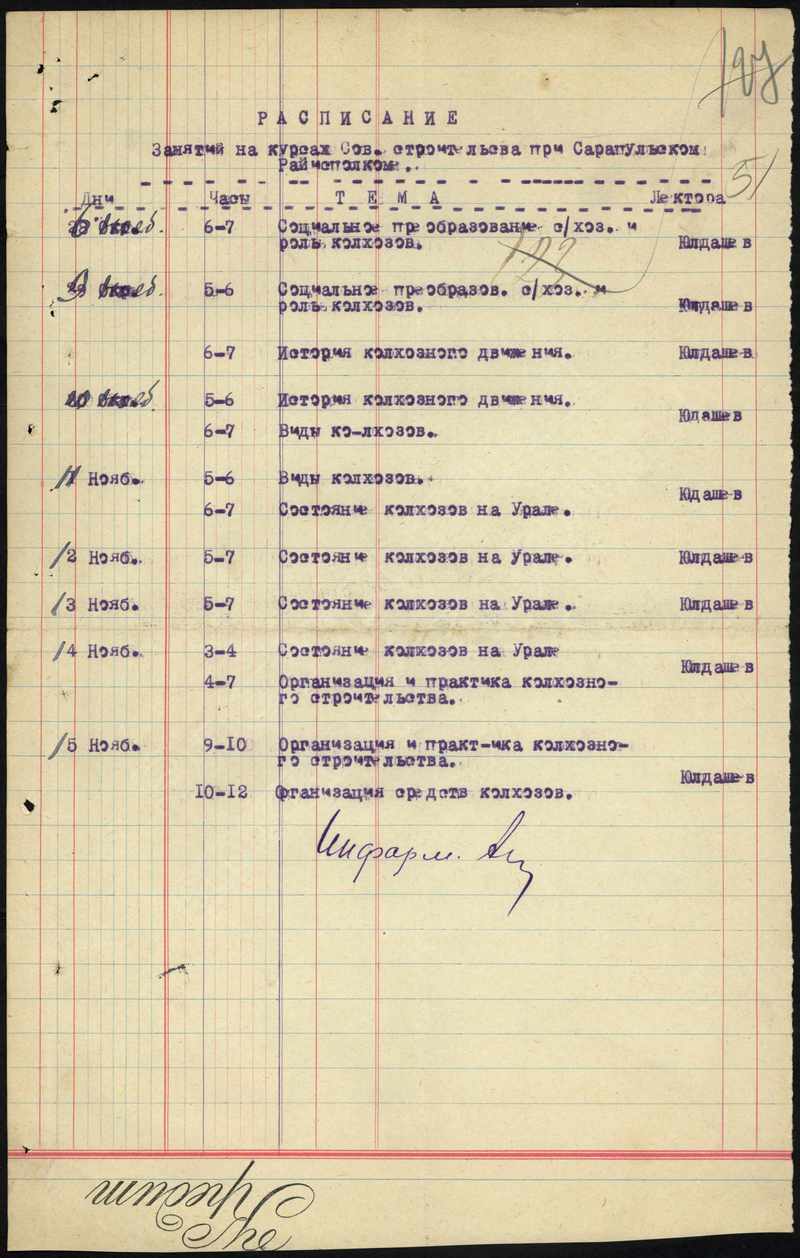 127
РАСПИСАНИЕ
Занятий на курсах Сов. строительсва при Сарапульском
Райисполкоме.
51
Дни Часы ТЕМА Лектора
6 нояб. 6-7 Социальное преобразование с/хоз. и
роль колхозов. Юлдашев
122
9 нояб. 5-6 Социальное преобразов. с/хоз. и
роль колхозов. Юлдашев
6-7 История колхозного движения. Юлдашев
10 нояб. 5-6 История колхозного движения.
Юдашев
6-7 Виды ко-лхозов.
11 Нояб. 5-6 Виды колхозов.
Юдашев
6-7 Состояние колхозов на Урале.
12 Нояб. 5-7 Состояние колхозов на Урале. Юлдашев
13 Нояб. 5-7 Состояние колхозов на Урале. Юлдашев
14 Нояб. 3-4 Состояние колхозов на Урале
Юлдашев
4-7 Организация и практика колхозно-
го строительства.
15 Нояб. 9-10 Организация и практ-ика колхозно-
го строительства.
Юлдашев
10-12 Организация средств колхозов.
Информ.